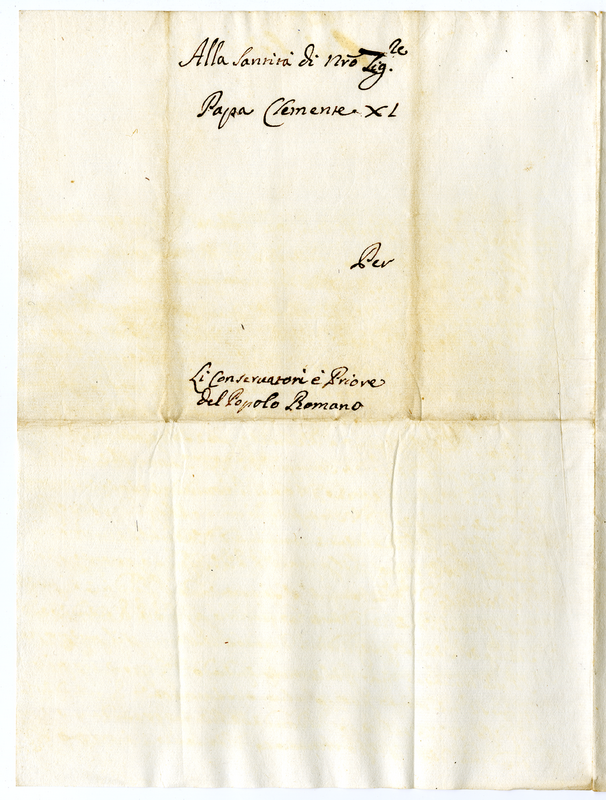 Alla Santità di nrō Sig.re
Papa Clemente XI
Per
Li Conservatori è Priore
del Popolo Romano